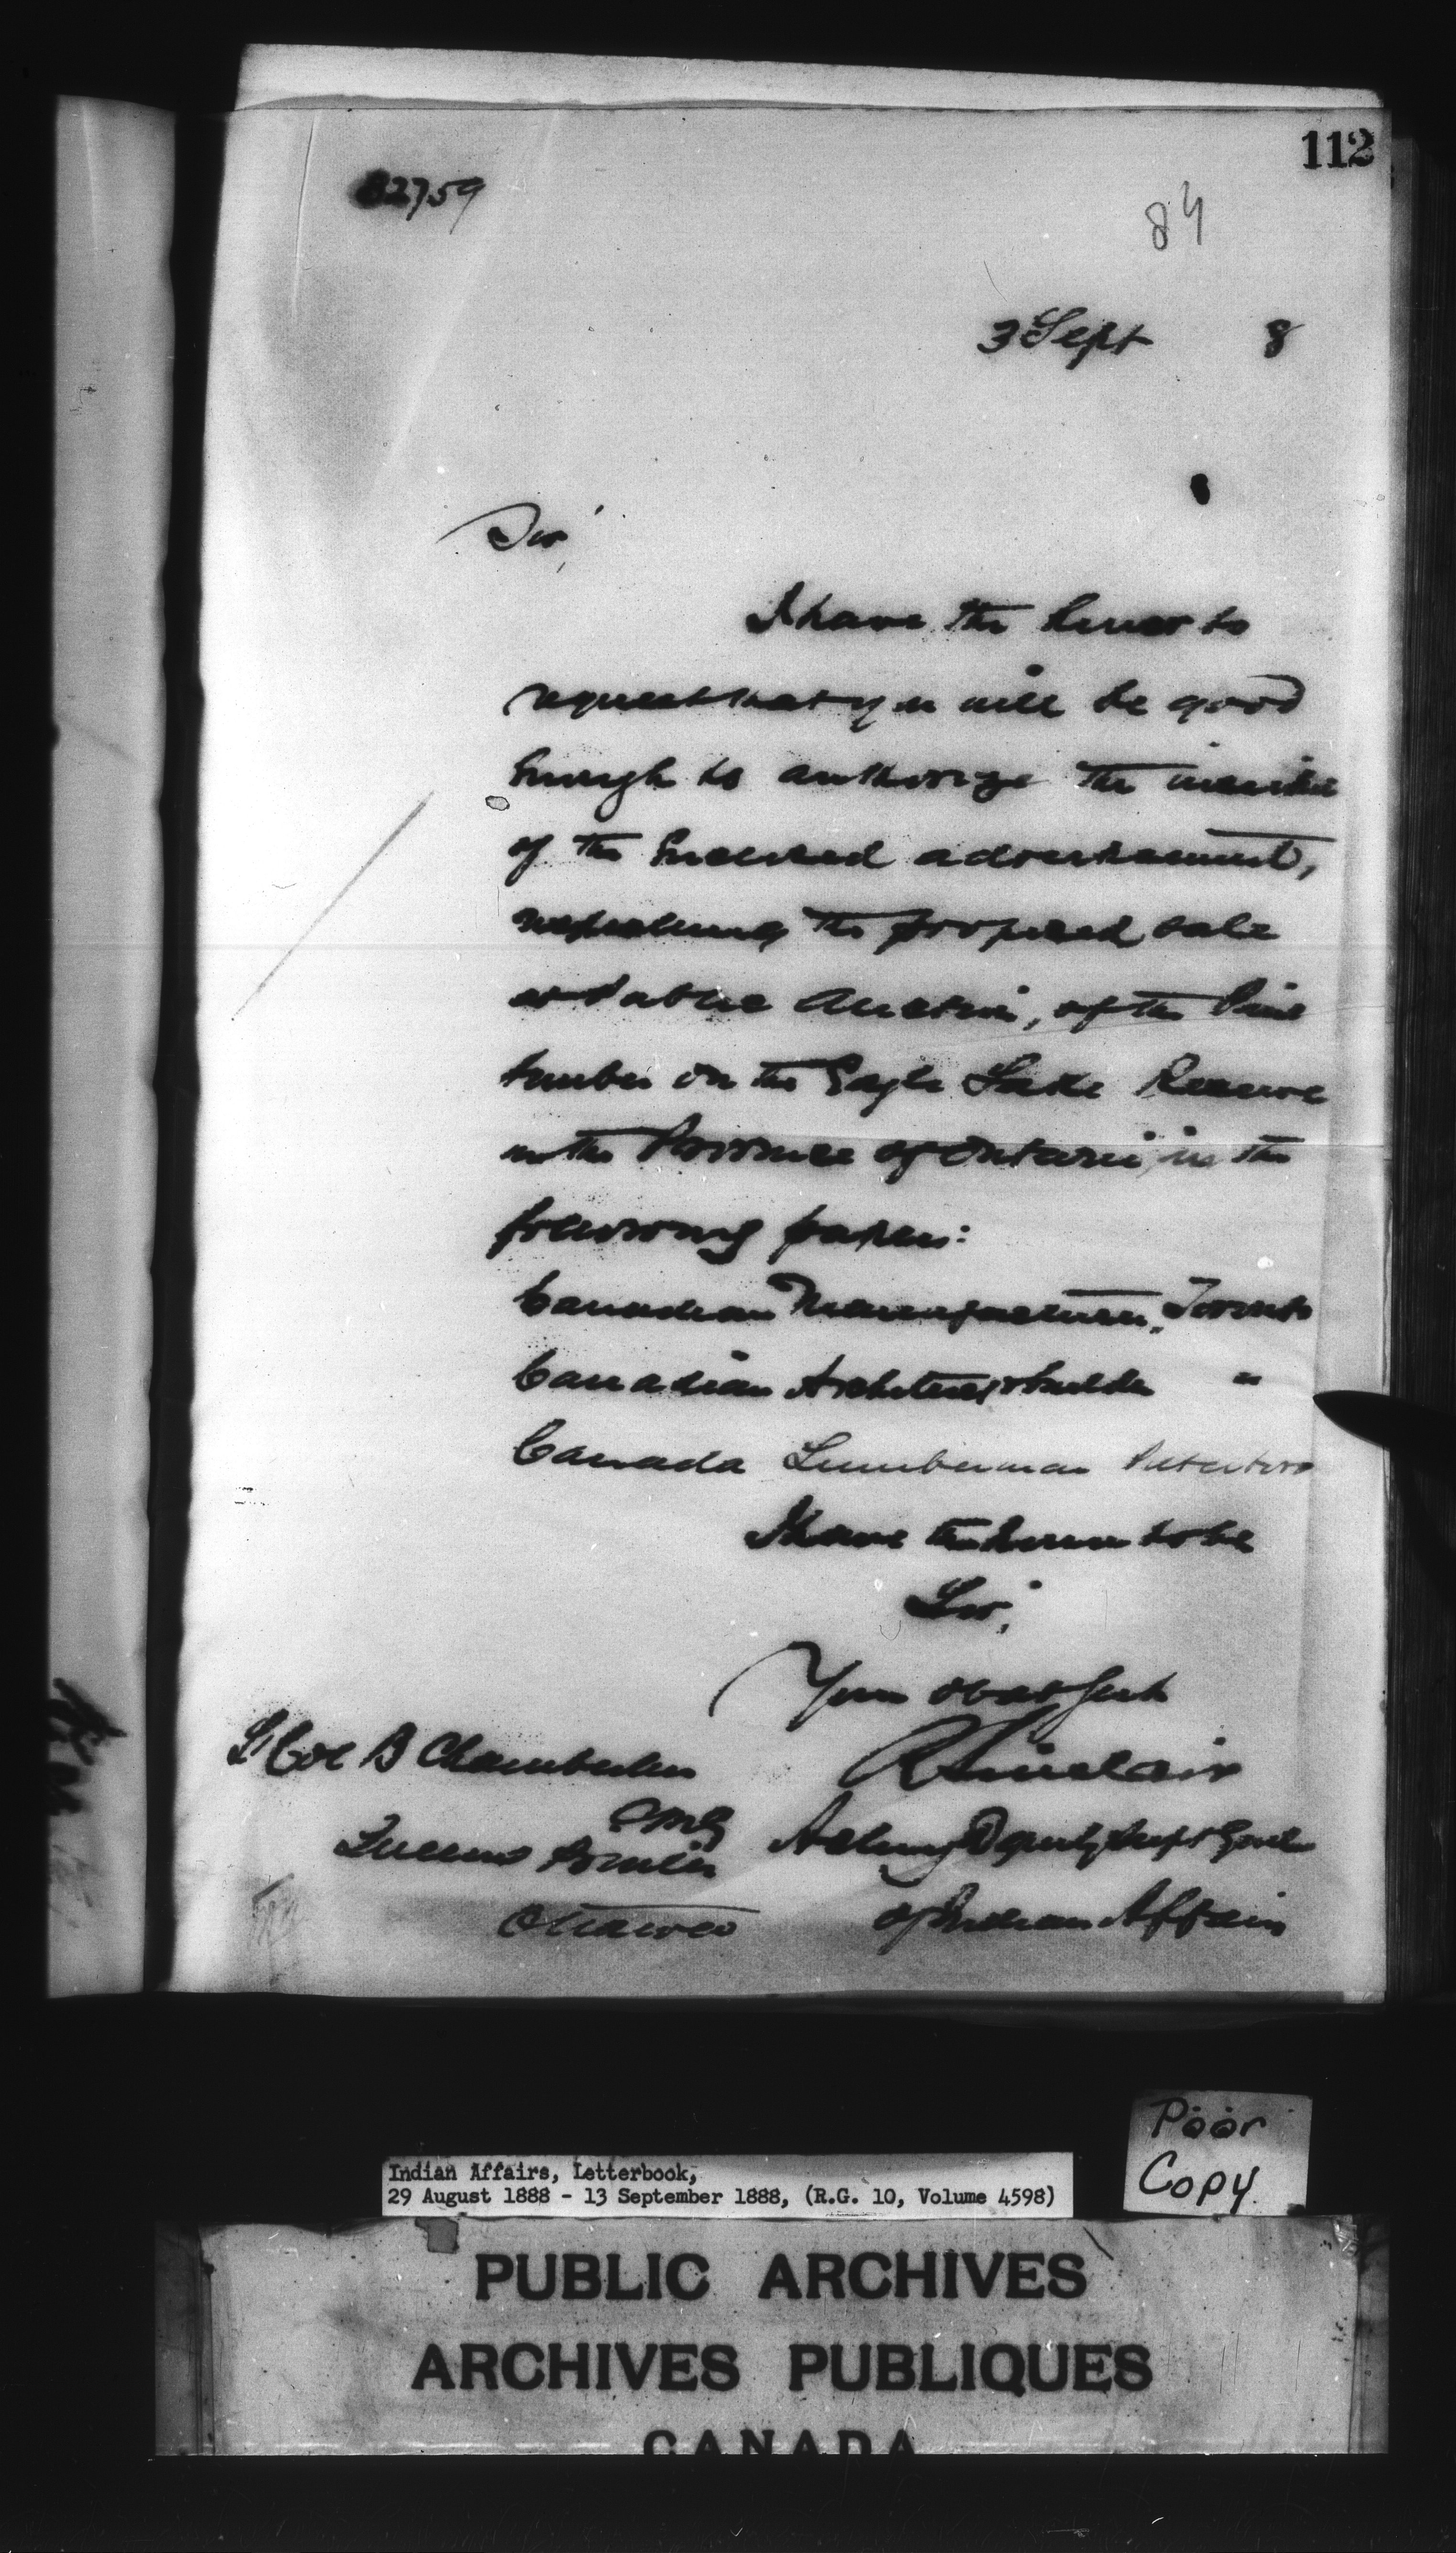 112
82759
84
3 Sept 8
Sir,
I have the honor to
request that you will be good
enough to authorize the insertion
of the enclosed advertisement,
respecting the proposed sale
at Public Auction, of the Pine
timber on the Eagle Lake Reserve
in the Province of Ontario in the
following papers:
Canadian Manufacturer, Toronto
Canadian Architect & Builder "
Canada Lumberman Peterboro
I have the honor to be
Sir,
Your obdt Servt
R Sinclair
Acting Deputy Supt Genl
of Indian Affairs
Lt Col B Chamberlin
CMG
Queens Printer
Ottawa
Poor
Copy
Indian Affairs, Letterbook,
29 August 1888 - 13 September 1888, (R.G. 10, Volume 4598)
PUBLIC ARCHIVES
ARCHIVES PUBLIQUES
CANADA